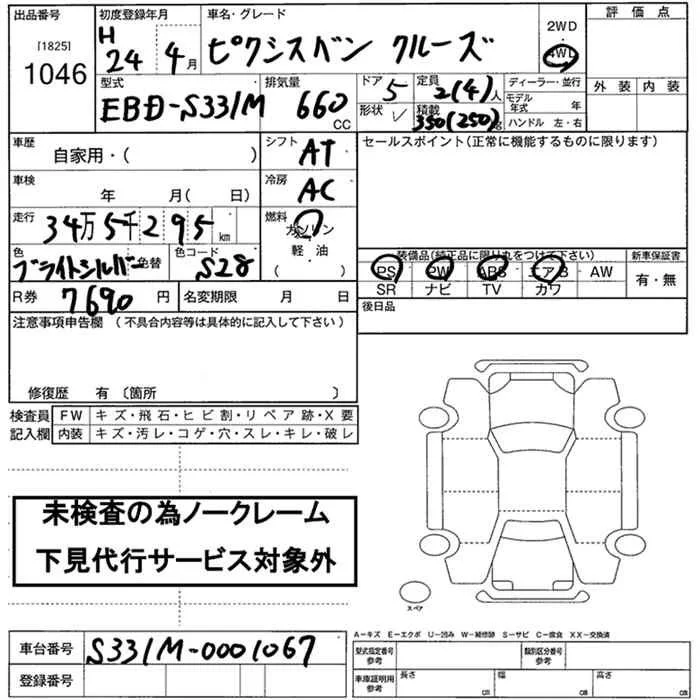 出品番号 初度登録年月 車名・グレード 2WD 評価点
[1825] H ・
1046 24 4月 ピクシスバン クルーズ 4WD
型式 排気量 ドア 定員 ディーラー・並行 外装 内装
EBD-S331M 660 CC 5 2(4)人 モデル年式 年
形状 積載 350(250)kg ハンドル 左・右
車歴 シフト セールスポイント(正常に機能するものに限ります)
自家用・( ) AT
車検 冷房
年 月( 日) AC
走行 燃料
34万5千295km ガソリン
色 色替 色コード 軽油 装備品(純正品に限り丸をつけて下さい) 新車保証書
ブライトシルバー S28 ( ) PS PW ABS エアB AW 有・無
R券 7690円 名変期限 月 日 SR ナビ TV カワ
注意事項申告欄 (不具合内容等は具体的に記入して下さい) 後日品
修復歴 有 〔箇所 〕
検査員 FW キズ・飛石・ヒビ割・リペア跡・X要
記入欄 内装 キズ・汚レ・コゲ・穴・スレ・キレ・破レ
未検査の為ノークレーム
下見代行サービス対象外
スペア
A-キズ E-エクボ U-凹み W-補修跡 S-サビ C-腐食 XX-交換済
車台番号 S331M-0001067 型式指定番号 参考 類別区分番号 参考
登録番号 車庫証明用 参考 長さ cm 幅 cm 高さ cm